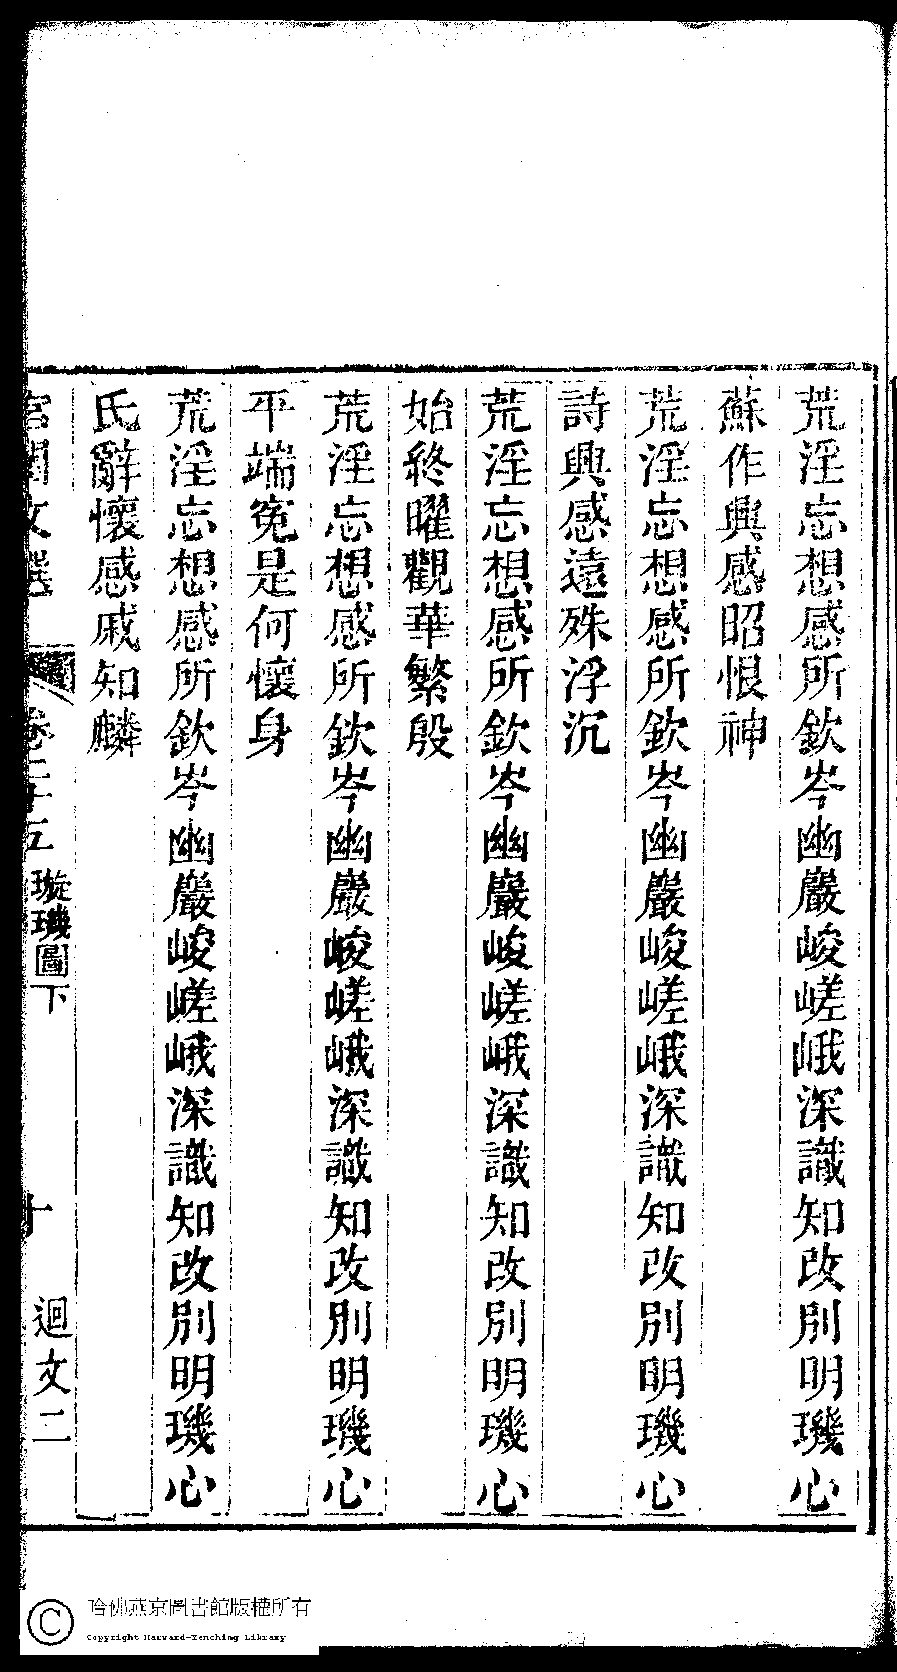 荒淫忘想感所欽岑幽巖峻嵯峨深識知改別明璣心
蘇作興感昭恨神
荒淫忘想感所欽岑幽巖峻嵯峨深識知改別明璣心
詩興感遠殊浮沉
荒淫忘想感所欽岑幽巖峻嵯峨深識知改別明璣心
始終曜觀華繁殷
荒淫忘想感所欽岑幽巖峻嵯峨深識知改別明璣心
平端寃是何懷身
荒淫忘想感所欽岑幽巖峻嵯峨深識知改別明璣心
氏辭懷感戚知麟
宮閨文選 卷二十五 璇璣圖下 十 迴文二
哈佛燕京圖書館版權所有
Copyright Harvard-Yenching Library